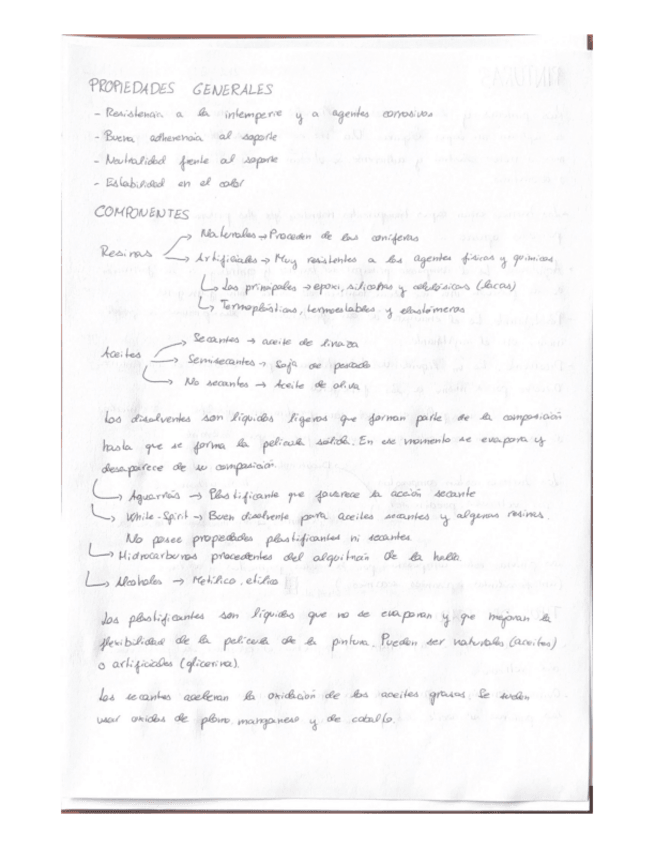 PROPIEDADES GENERALES
- Resistencia a la intemperie y a agentes corrosivos
- Buena adherencia al soporte
- Neutralidad frente al soporte
- Estabilidad en el color
COMPONENTES
Resinas → Naturales → Proceden de las coníferas
→ Artificiales → Muy resistentes a los agentes físicos y químicos
→ Las principales → epoxi, silicatos y celulósicas (lacas)
→ Termoplásticas, termoestables y elastómeros
Aceites → Secantes → aceite de linaza
→ Semisecantes → Soja de pescado
→ No secantes → Aceite de oliva
Los disolventes son líquidos ligeros que forman parte de la composición
hasta que se forma la película sólida. En ese momento se evapora y
desaparece de su composición.
→ Aguarrás → Plastificante que favorece la acción secante
→ White-Spirit → Buen disolvente para aceites secantes y algunas resinas.
No posee propiedades plastificantes ni secantes
→ Hidrocarburos procedentes del alquitrán de la hulla
→ Alcoholes → Metílico, etílico
Los plastificantes son líquidos que no se evaporan y que mejoran la
flexibilidad de la película de la pintura. Pueden ser naturales (aceites)
o artificiales (glicerina).
Los secantes aceleran la oxidación de los aceites grasos. Se suelen
usar oxidos de plomo, manganeso y de cobalto.